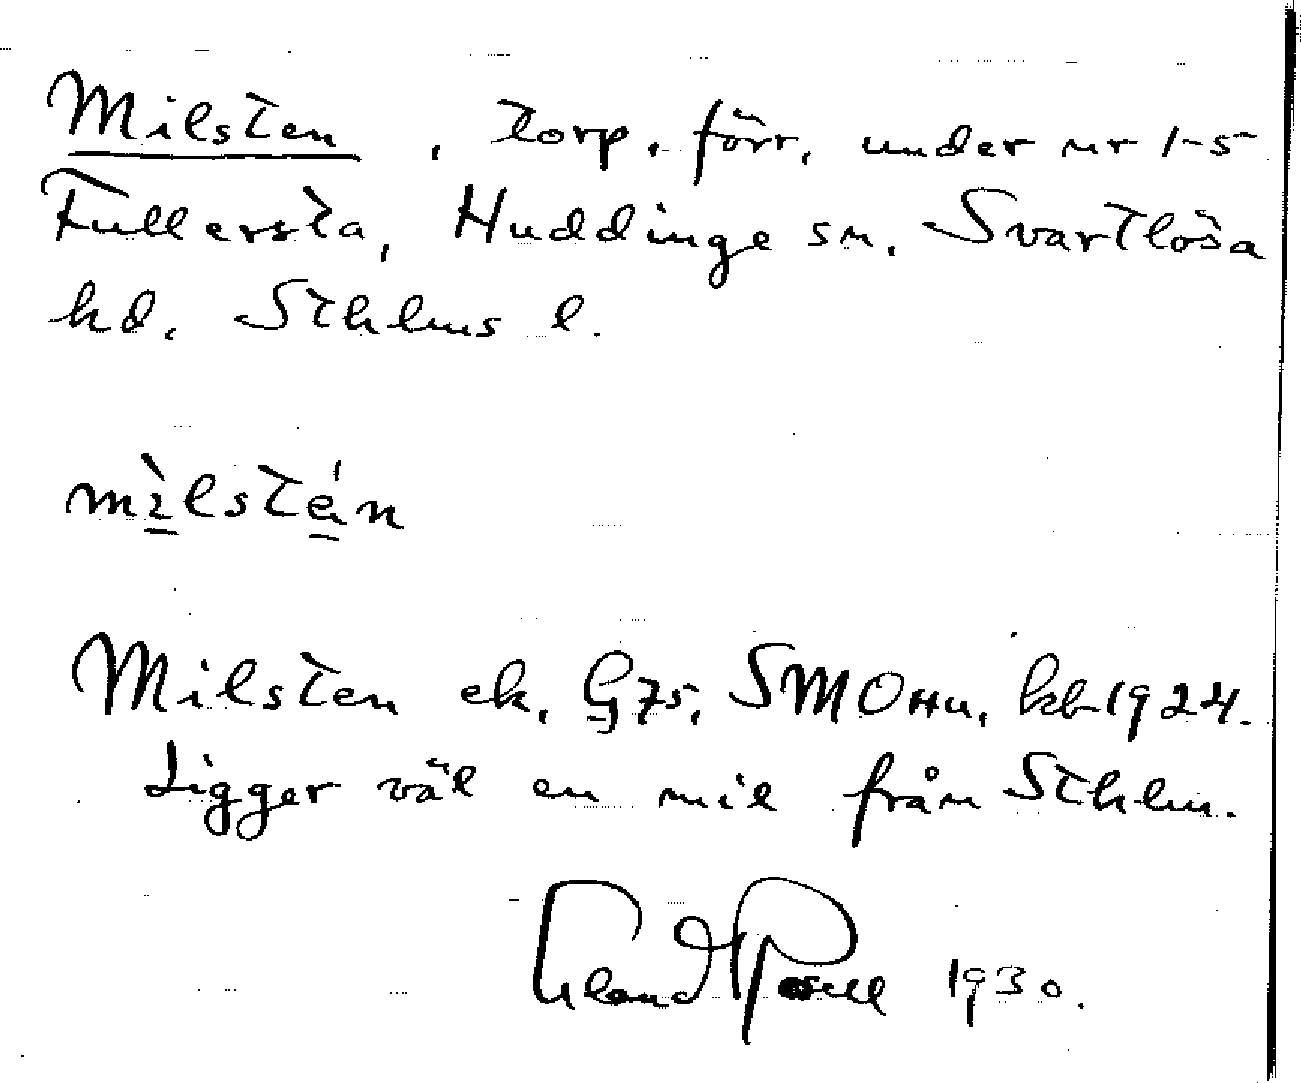 Milsten, torp, förr, under nr 1-5
Fullersta, Huddinge sn, Svartlösa
hd, Sthlms l.
mìlstén
Milsten ek. G75, SMOHu, kb 1924.
Ligger väl en mil från Sthlm.
1930.